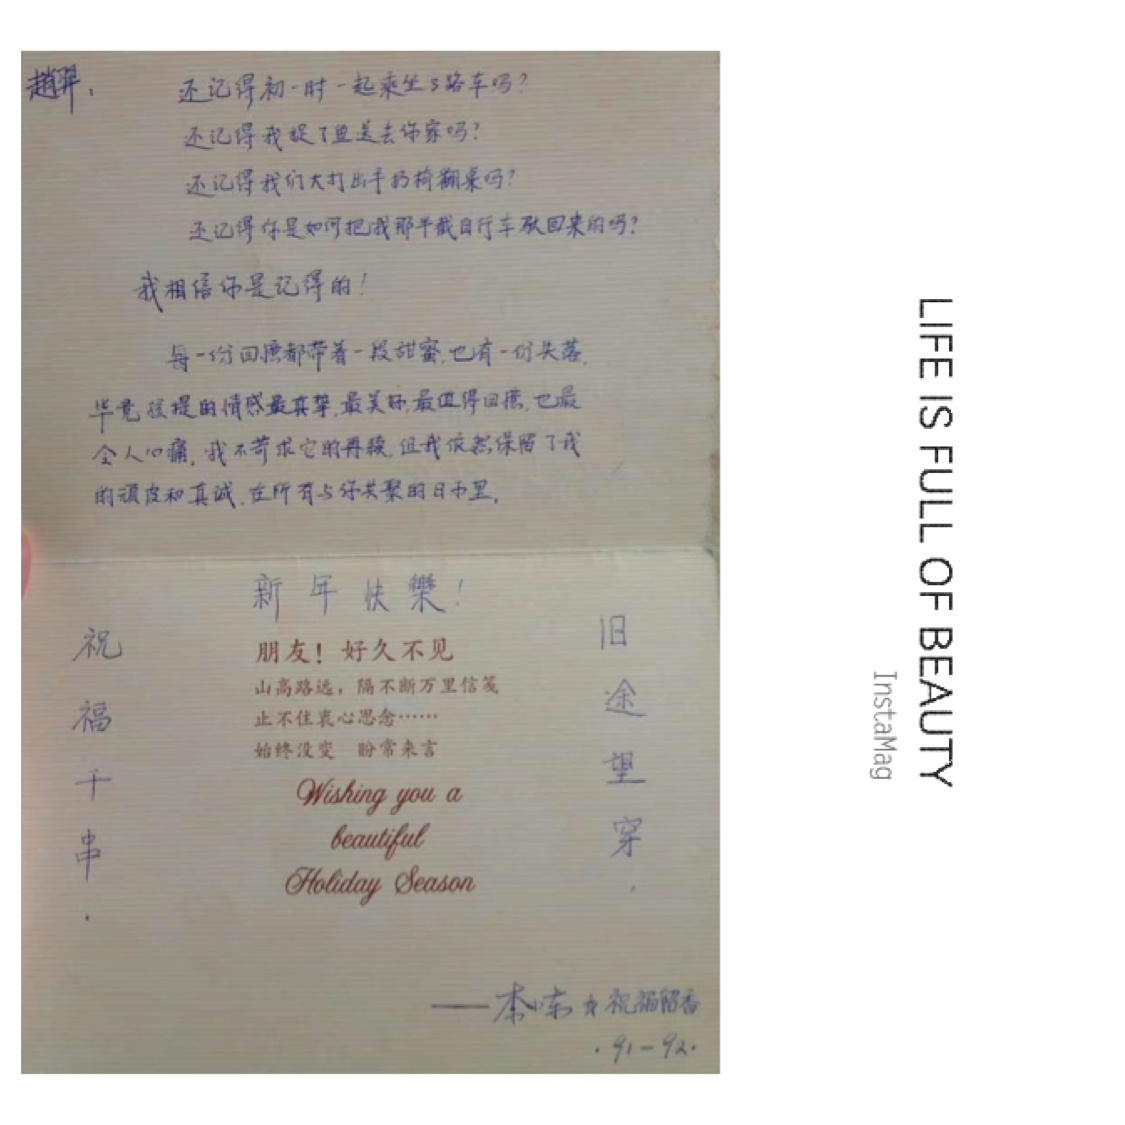 还记得初一时一起乘坐3路车吗？
还记得我捉了鱼送去你家吗？
还记得我们大打出手扔椅翻桌吗？
还记得你是如何把我那半截自行车驮回来的吗？
我相信你是记得的！
每一份回忆都带着一段甜蜜,也有一份失落,
毕竟孩提的情感最真挚,最美好,最值得回忆,也最
令人心痛,我不苛求它的再续,但我依然保留了我
的顽皮和真诚,在所有与你共聚的日子里。
新年快樂！
祝福千串.
旧途望穿.
朋友！好久不见
山高路远，隔不断万里信笺
止不住衷心思念……
始终没变 盼常来言
Wishing you a
beautiful
Holiday Season
祝福留香
.91-92.
LIFE IS FULL OF BEAUTY
InstaMag